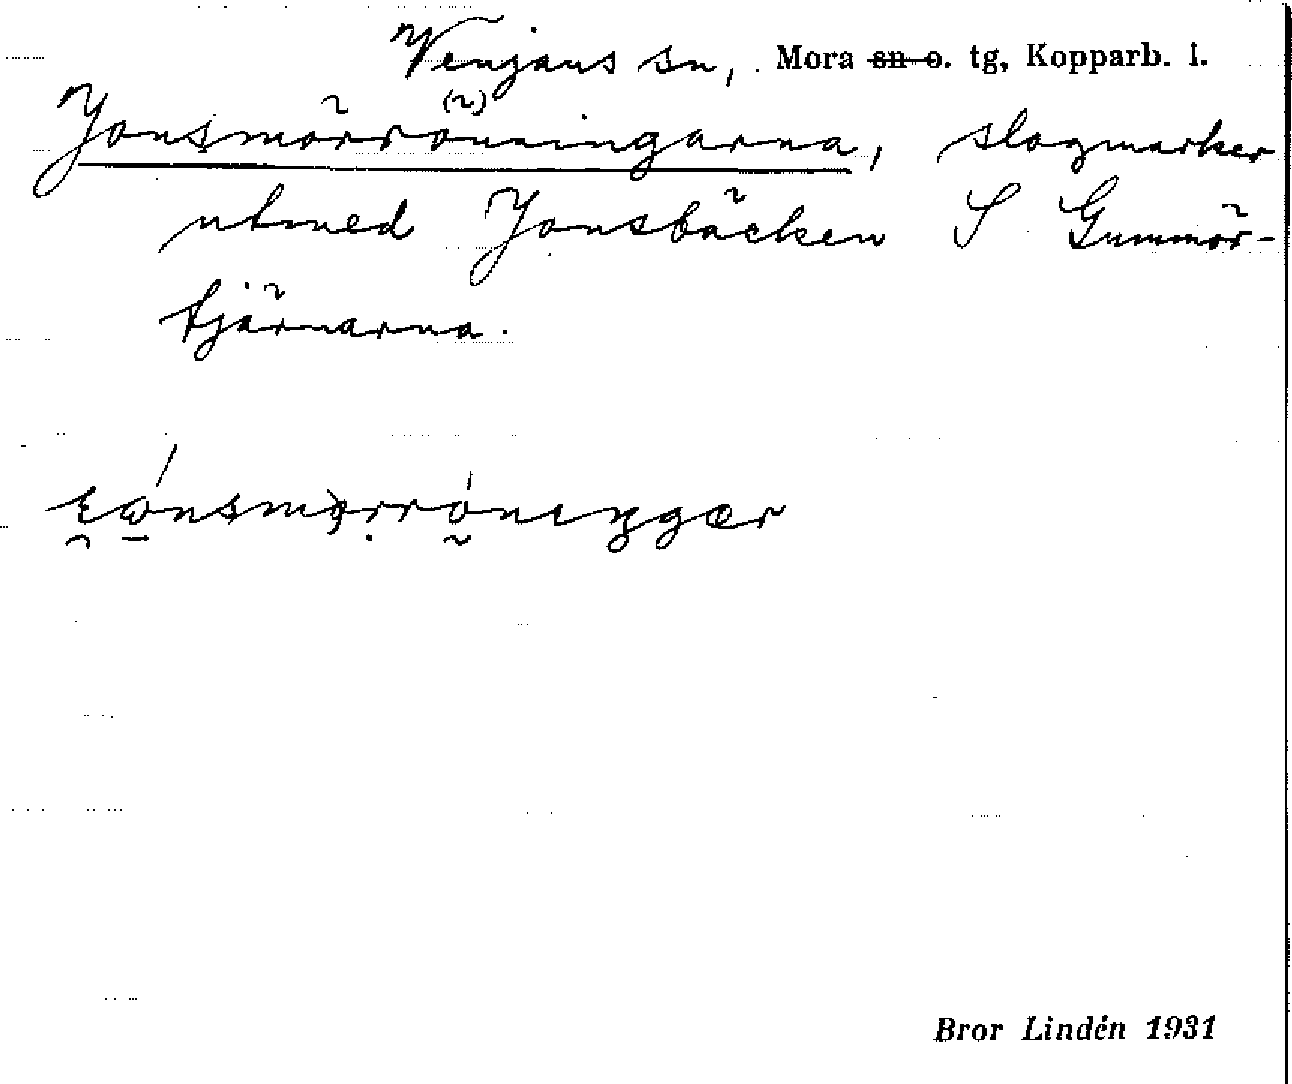 Venjans sn, Mora sn o. tg, Kopparb. l.
Jonsmörröningarna, slogmarker
utmed Jonsbäcken S Gummör-
tjärnarna.
Bror Lindén 1931